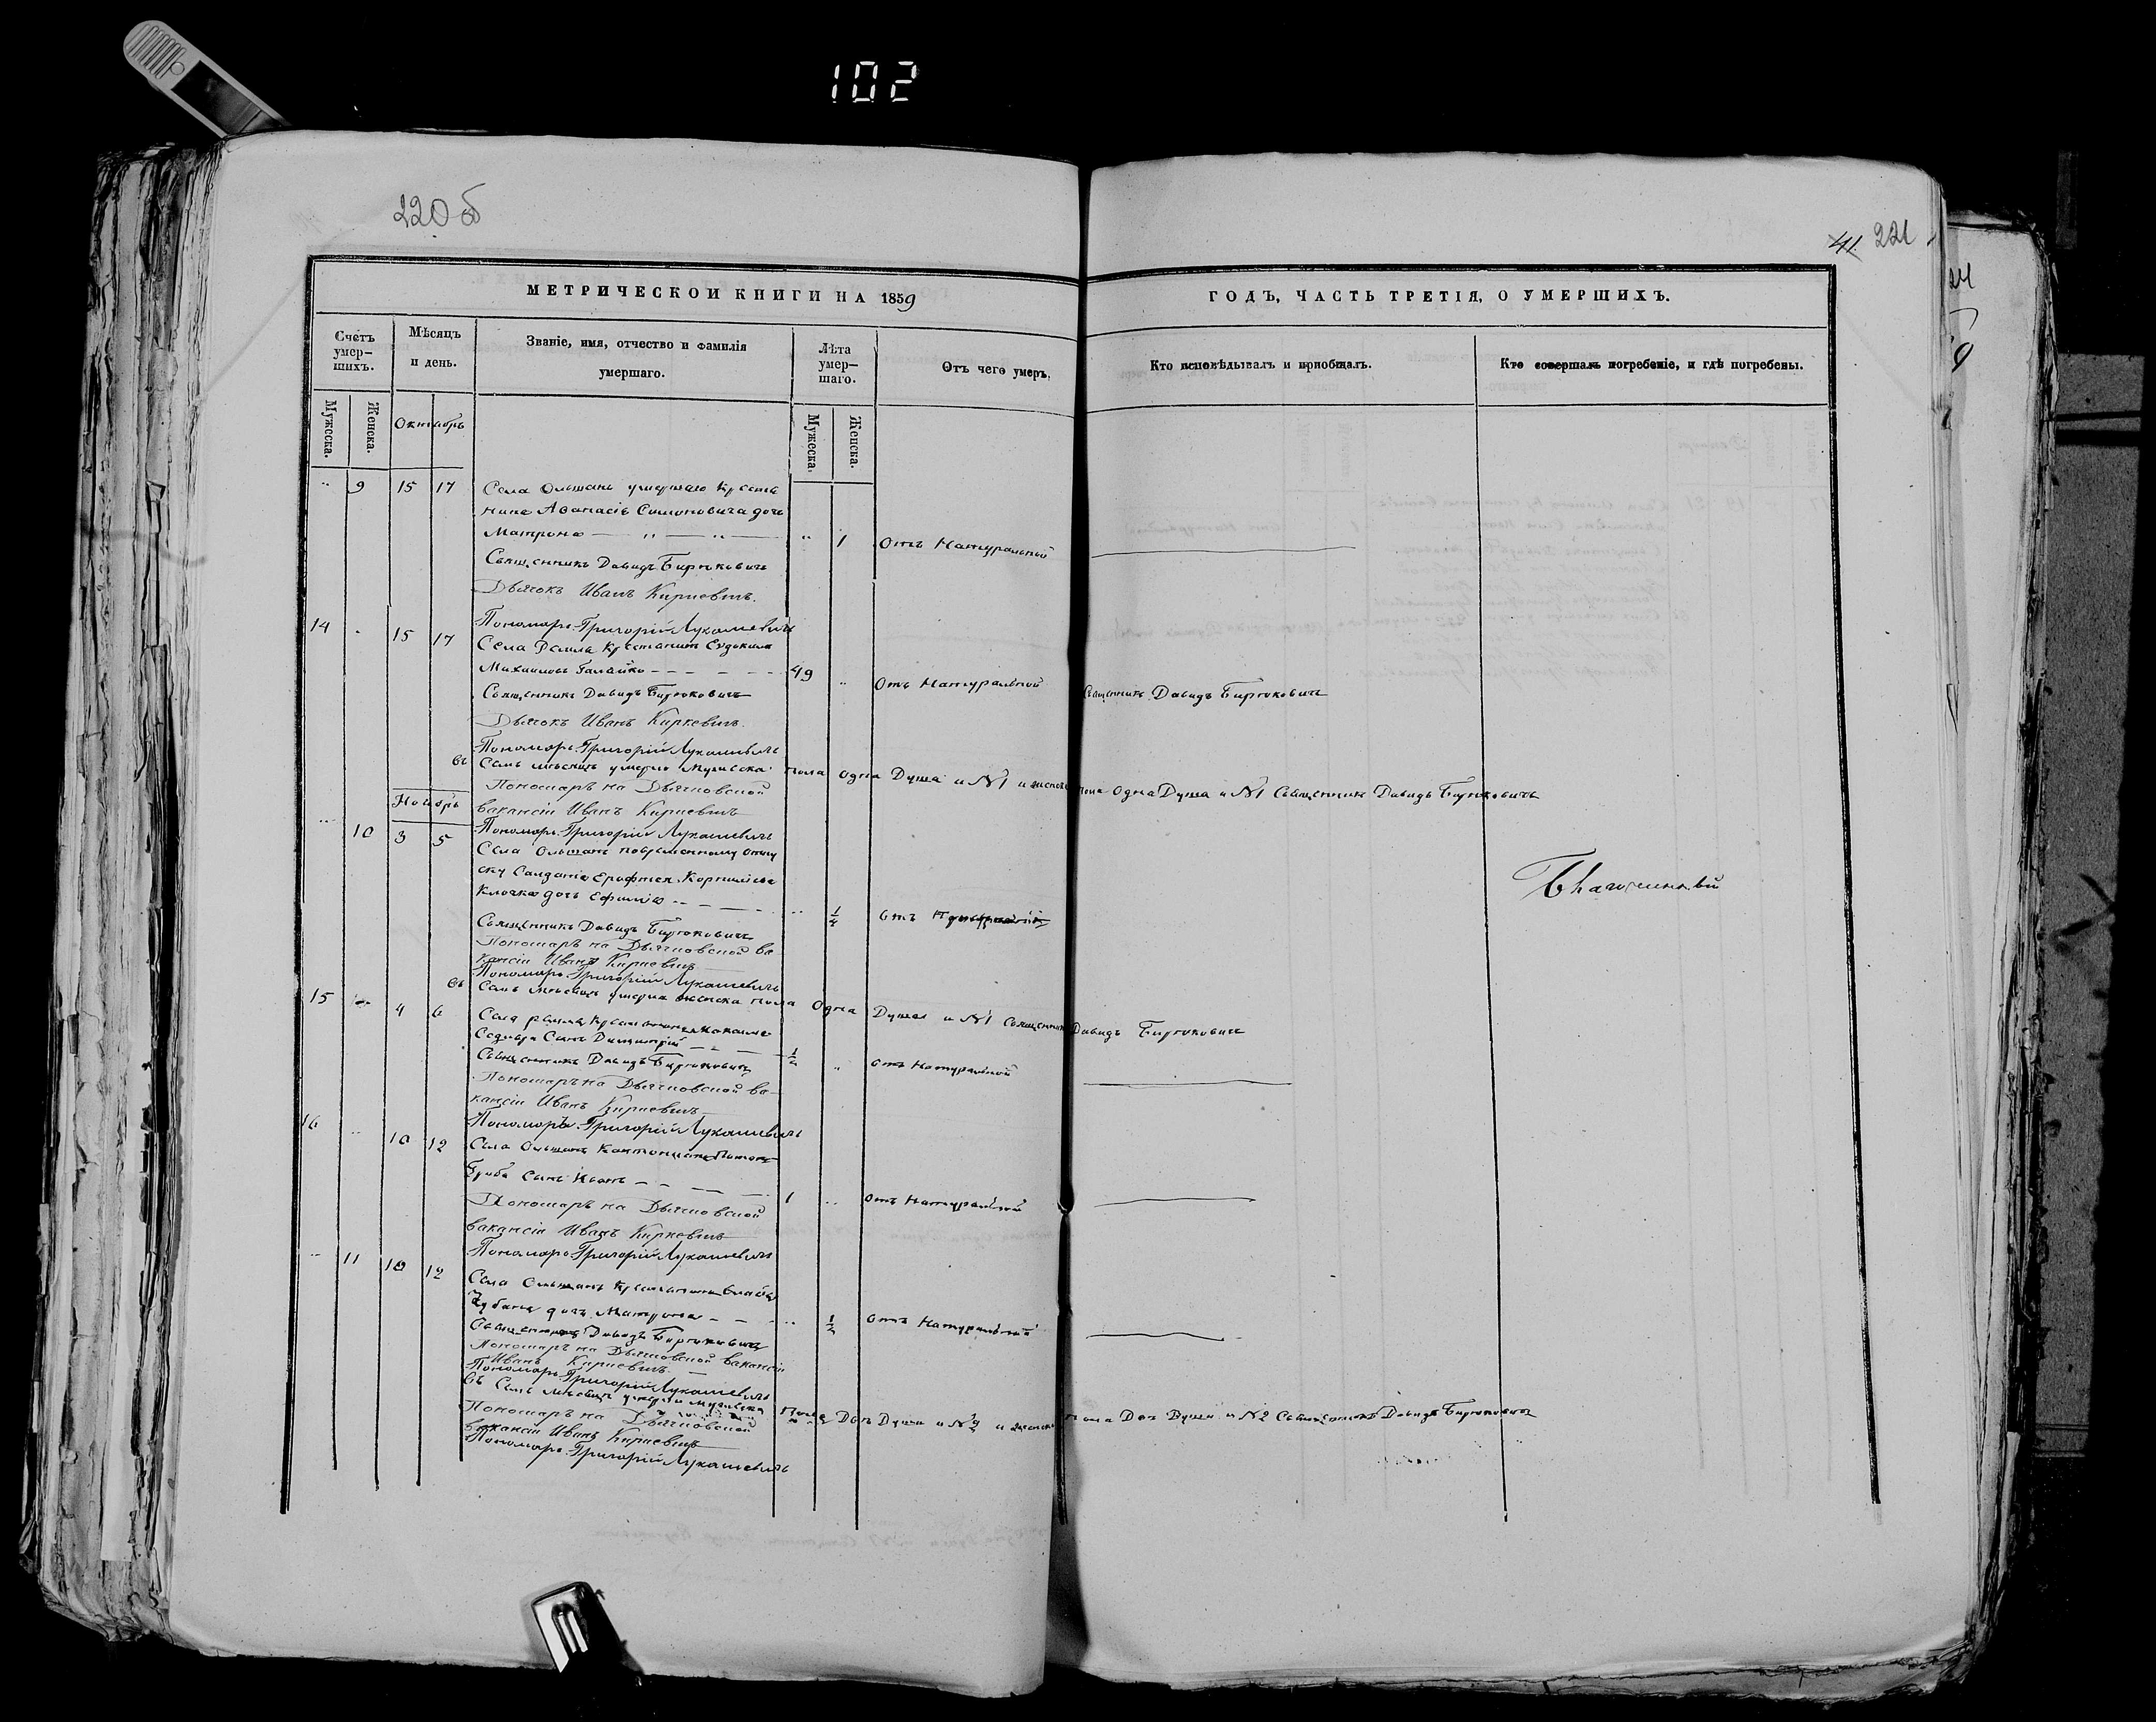 102
220об
41. 221
МЕТРИЧЕСКОИ КНИГИ НА 1859
ГОДЪ, ЧАСТЬ ТРЕТІЯ, О УМЕРШИХЪ.
Счетъ умер-шихъ.
Мѣсяцъ и день.
Званіе, имя, отчество и фамилія умершаго.
Лѣта умер-шаго.
Отъ чего умеръ.
Кто исповѣдывалъ и пріобщалъ.
Кто совершалъ погребеніе, и гдѣ погребены.
Мужеска.
Женска.
Октябрь
Мужеска.
Женска.
" 9 15 17 Села Ольшанъ умершаго Крестья
нина Аѳанасія Симоновича дочь
Матрона " 1 Отъ Натуральной
Священникъ Давидъ Бирюковичъ
Дьячокъ Иванъ Киркевичъ.
Пономарь Григорій Лукашевичъ
14 " 15 17 Села Крестьянинъ Евдокимъ
Михаиловъ Галайко 49 " Отъ Натуральной Священникъ Давидъ Бирюковичъ
Священникъ Давидъ Бирюковичъ
Дьячокъ Иванъ Киркевичъ.
Пономарь Григорій Лукашевичъ
Въ Семъ мѣсяцѣ умерло Мужеска пола Одна Душа и №1 и женска пола Одна Душа и №1 Священникъ Давидъ Бирюковичъ
Пономарь на Дьячковской
вакансіи Иванъ Киркевичъ
Пономарь Григорій Лукашевичъ
Ноябрь
" 10 3 5 Села Ольшанъ повременному отпу
ску Солдата Корнилієва
дочь Ефимія " 1/4 Отъ
Священникъ Давидъ Бирюковичъ
Пономарь на Дьячковской ва
кансіи Иванъ Киркевичъ
Пономарь Григорій Лукашевичъ
Въ Семъ мѣсяцѣ умерла женска пола Одна Душа и №1 Священникъ Давидъ Бирюковичъ
Благочинный
15 " 4 6 Села Крестьянина Максима
Сынъ Димитрій 1/2 " Отъ Натуральной
Священникъ Давидъ Бирюковичъ
Пономарь на Дьячковской ва-
кансіи Иванъ Киркевичъ
Пономарь Григорій Лукашевичъ
16 " 10 12 Села Ольшанъ
Сынъ Иванъ 1 " Отъ Натуральной
Пономарь на Дьячковской
вакансіи Иванъ Киркевичъ
Пономарь Григорій Лукашевичъ
" 11 10 12 Села Ольшанъ Крестьянина
дочь Матрона " 1/2 Отъ Натуральной
Священникъ Давидъ Бирюковичъ
Пономарь на Дьячковской вакансіи
Иванъ Киркевичъ.
Пономарь Григорій Лукашевичъ
Въ Семъ мѣсяцѣ умерли Мужеска пола Двѣ Души и №2 и женска пола Двѣ Души и №2 Священникъ Давидъ Бирюковичъ
Пономарь на Дьячковской
вакансіи Иванъ Киркевичъ
Пономарь Григорій Лукашевичъ